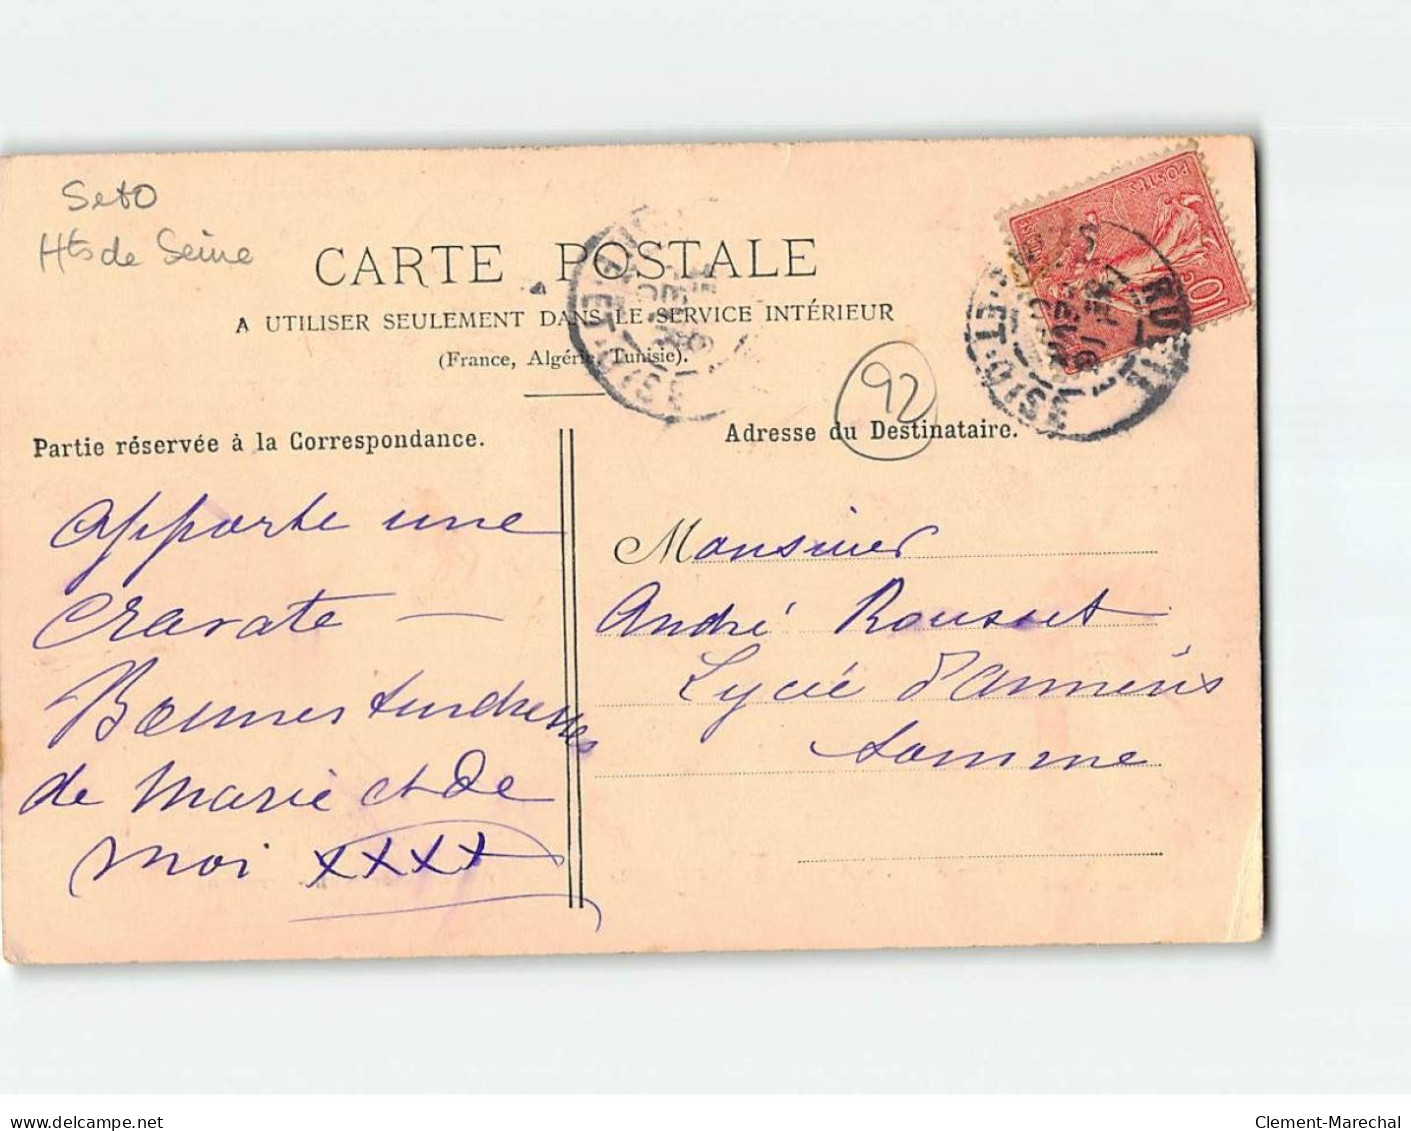 SetO
Hts de Seine
CARTE POSTALE
A UTILISER SEULEMENT DANS LE SERVICE INTÉRIEUR
(France, Algérie, Tunisie).
92
POSTES
10c
RUE
ET-OISE
ET-OISE
Partie réservée à la Correspondance.
Adresse du Destinataire.
apporte une
cravate —
Bonnes tendresses
de Marie et de
moi XXXX
Monsieur
André Rousset
Lycée d'Amiens
Somme
www.delcampe.net
Clement-Marechal